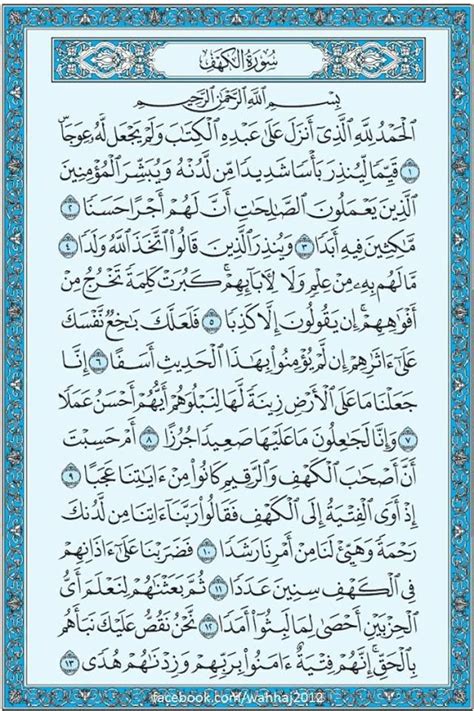 سُورَةُ الكَهْفِ
بِسْمِ اللَّهِ الرَّحْمَٰنِ الرَّحِيمِ
الْحَمْدُ لِلَّهِ الَّذِي أَنزَلَ عَلَىٰ عَبْدِهِ الْكِتَابَ وَلَمْ يَجْعَل لَّهُ عِوَجًا
١ قَيِّمًا لِّيُنذِرَ بَأْسًا شَدِيدًا مِّن لَّدُنْهُ وَيُبَشِّرَ الْمُؤْمِنِينَ
الَّذِينَ يَعْمَلُونَ الصَّالِحَاتِ أَنَّ لَهُمْ أَجْرًا حَسَنًا ٢
مَّاكِثِينَ فِيهِ أَبَدًا ٣ وَيُنذِرَ الَّذِينَ قَالُوا اتَّخَذَ اللَّهُ وَلَدًا ٤
مَّا لَهُم بِهِ مِنْ عِلْمٍ وَلَا لِآبَائِهِمْ ۚ كَبُرَتْ كَلِمَةً تَخْرُجُ مِنْ
أَفْوَاهِهِمْ ۚ إِن يَقُولُونَ إِلَّا كَذِبًا ٥ فَلَعَلَّكَ بَاخِعٌ نَّفْسَكَ
عَلَىٰ آثَارِهِمْ إِن لَّمْ يُؤْمِنُوا بِهَٰذَا الْحَدِيثِ أَسَفًا ٦ إِنَّا
جَعَلْنَا مَا عَلَى الْأَرْضِ زِينَةً لَّهَا لِنَبْلُوَهُمْ أَيُّهُمْ أَحْسَنُ عَمَلًا
٧ وَإِنَّا لَجَاعِلُونَ مَا عَلَيْهَا صَعِيدًا جُرُزًا ٨ أَمْ حَسِبْتَ
أَنَّ أَصْحَابَ الْكَهْفِ وَالرَّقِيمِ كَانُوا مِنْ آيَاتِنَا عَجَبًا ٩
إِذْ أَوَى الْفِتْيَةُ إِلَى الْكَهْفِ فَقَالُوا رَبَّنَا آتِنَا مِن لَّدُنكَ
رَحْمَةً وَهَيِّئْ لَنَا مِنْ أَمْرِنَا رَشَدًا ١٠ فَضَرَبْنَا عَلَىٰ آذَانِهِمْ
فِي الْكَهْفِ سِنِينَ عَدَدًا ١١ ثُمَّ بَعَثْنَاهُمْ لِنَعْلَمَ أَيُّ
الْحِزْبَيْنِ أَحْصَىٰ لِمَا لَبِثُوا أَمَدًا ١٢ نَّحْنُ نَقُصُّ عَلَيْكَ نَبَأَهُم
بِالْحَقِّ ۚ إِنَّهُمْ فِتْيَةٌ آمَنُوا بِرَبِّهِمْ وَزِدْنَاهُمْ هُدًى ١٣
facebook.com/wahhaj2012